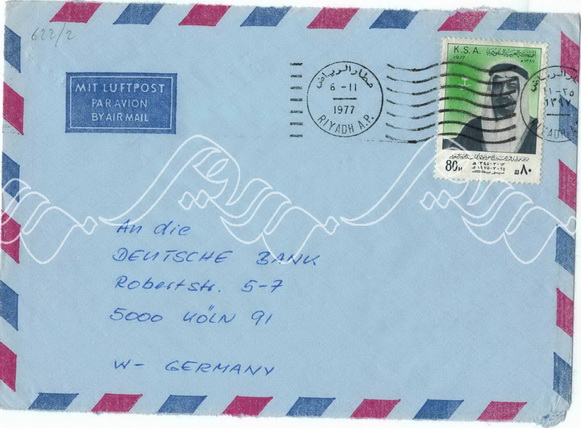 622/2
MIT LUFTPOST
PAR AVION
BY AIR MAIL
مطار الرياض
6-11
1977
RIYADH A.P.
K.S.A.
1977
80
٨٠
مطار الرياض
١١-٢٥
١٣٩٧
RIYADH
An die
DEUTSCHE BANK
Robertstr. 5-7
5000 KÖLN 91
W- GERMANY